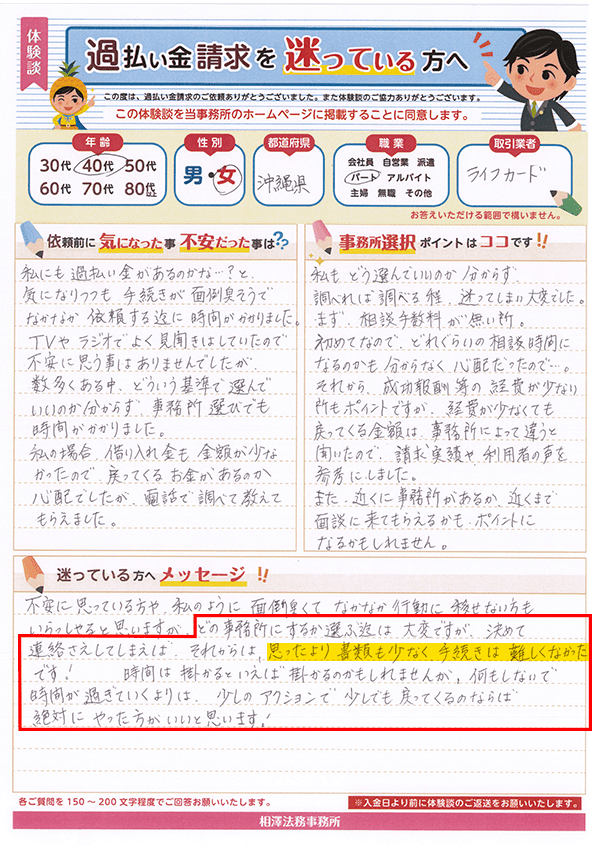 体験談
過払い金請求を迷っている方へ
この度は、過払い金請求のご依頼ありがとうございました。また体験談のご協力ありがとうございます。
この体験談を当事務所のホームページに掲載することに同意します。
年齢
30代 40代 50代
60代 70代 80代以上
性別
男・女
都道府県
沖縄県
職業
会社員 自営業 派遣
パート アルバイト
主婦 無職 その他
取引業者
ライフカード
お答えいただける範囲で構いません。
依頼前に気になった事 不安だった事は??
私にも過払い金があるのかな…?と、
気になりつつも 手続きが面倒臭そうで
なかなか 依頼する迄に 時間がかかりました。
TVや ラジオで よく見聞きはしていたので
不安に思う事は ありませんでしたが、
数多くある中、どういう基準で選んで
いいのか分からず、事務所 選びでも
時間がかかりました。
私の場合、借り入れ金も 金額が少な
かったので 戻ってくる お金があるのか
心配でしたが、電話で調べて教えて
もらえました。
事務所選択 ポイントはココです!!
私も どう選んでいいのか 分からず、
調べれば 調べる程、迷ってしまい大変でした。
まず、相談手数料が無い所。
初めてなので、どれぐらいの相談時間に
なるのかも 分からなく 心配だったので…。
それから、成功報酬等の 経費が少なり
所もポイントですが、経費が少なくても
戻ってくる金額は、事務所によって違うと
聞いたので、請求実績や、利用者の声を
参考にしました。
また、近くに事務所があるか、近くまで
面談に来てもらえるかも ポイントに
なるかもしれません。
迷っている方へメッセージ!!
不安に思っている方や、私のように 面倒臭くて なかなか行動に 移せない方も
いらっしゃると思いますが、どの事務所にするか選ぶ迄は 大変ですが、決めて
連絡さえしてしまえば、それからは、思ったより 書類も少なく 手続きは 難しくなかった
です! 時間は掛かるといえば 掛かるのかもしれませんが、何もしないで
時間が過ぎていくよりは、少しのアクションで 少しでも 戻ってくるのならば
絶対に やった方がいいと思います!
各ご質問を150〜200文字程度でご回答お願いいたします。
※入金日より前に体験談のご返送をお願いいたします。
相澤法務事務所